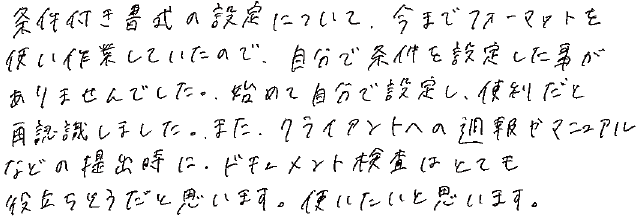 条件付き書式の設定について、今までフォーマットを
使い作業していたので、自分で条件を設定した事が
ありませんでした。始めて自分で設定し、便利だと
再認識しました。また、クライアントへの週報やマニュアル
などの提出時に、ドキュメント検査はとても
役立ちそうだと思います。使いたいと思います。